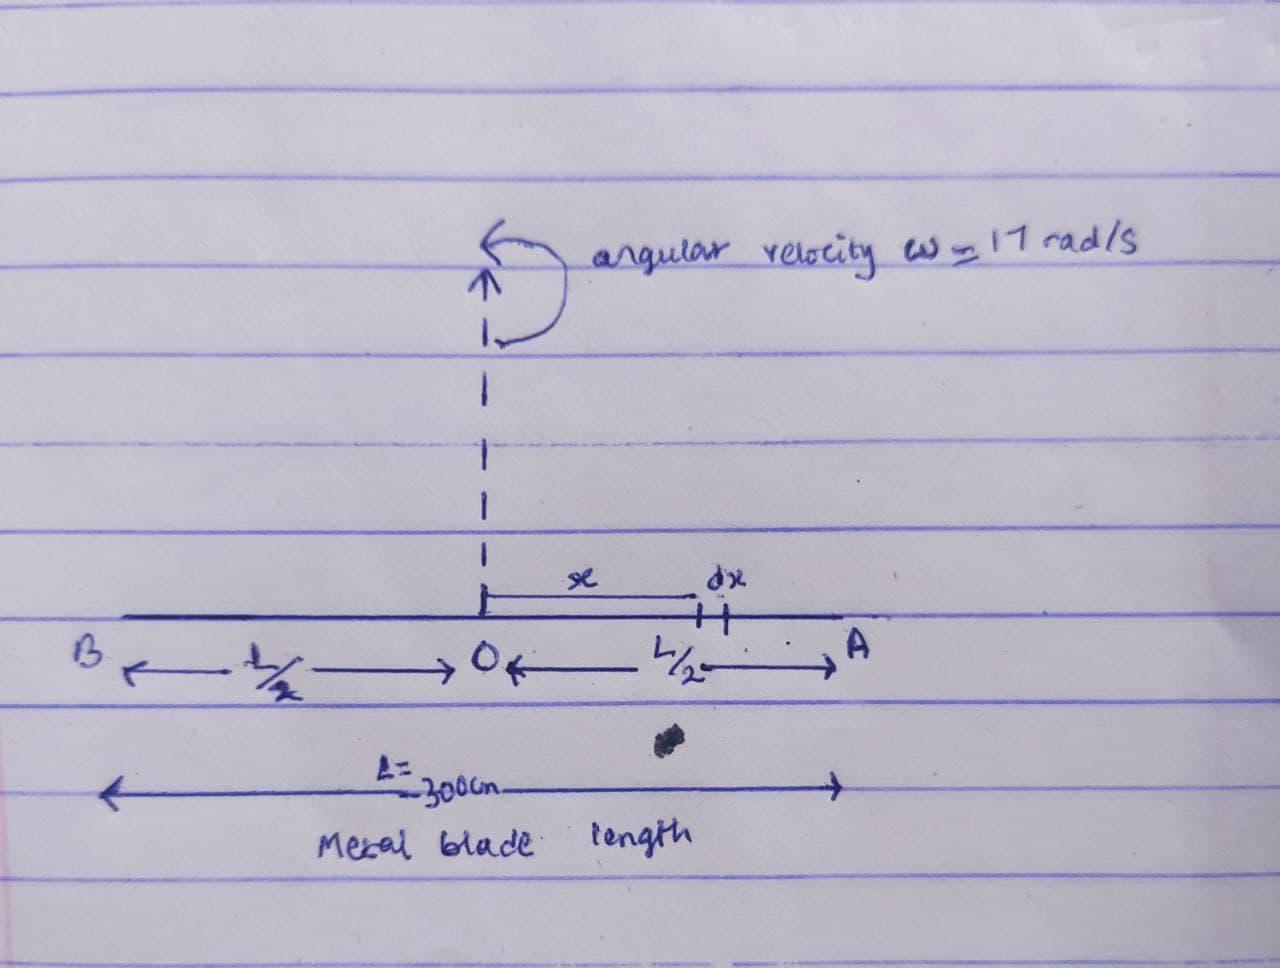 angular velocity ω = 17 rad/s
x dx
B L/2 O L/2 A
L=
300cm
Metal blade length